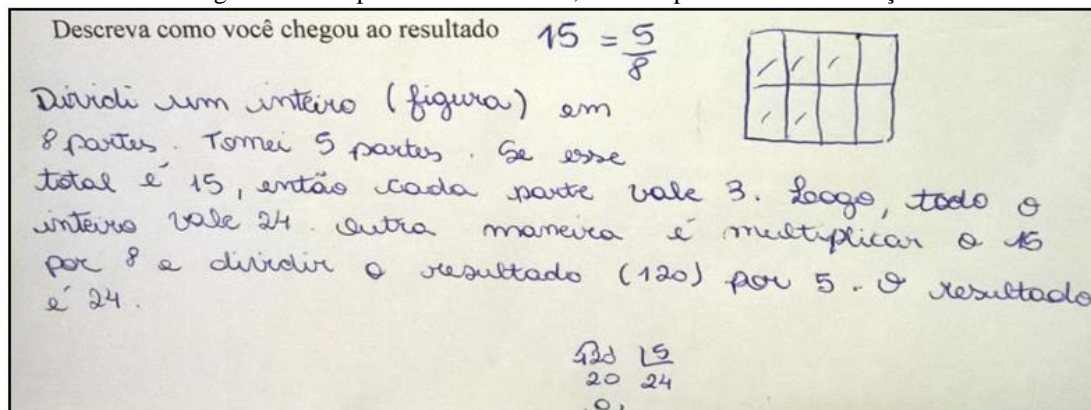 Descreva como você chegou ao resultado 15 = 5/8
Dividi um inteiro (figura) em
8 partes. Tomei 5 partes. Se esse
total é 15, então cada parte vale 3. Logo, todo o
inteiro vale 24. Outra maneira é multiplicar o 15
por 8 e dividir o resultado (120) por 5. O resultado
é 24.
120 5
20 24
0